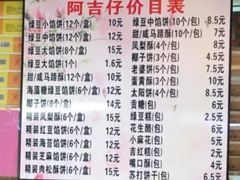 阿吉仔价目表
绿豆小馅饼(12个/盒) 10元
绿豆中馅饼(10个/包) 8.5元
绿豆中馅饼(12个/盒) 12元
甜/咸马蹄酥(10个/包) 7元
甜/咸马蹄酥(12个/盒) 10元
凤梨酥(4个/包) 5元
绿豆大馅饼(8个/盒) 14元
椰子饼(4个/包) 5元
绿豆大馅饼(1个) 1.6元
老婆饼(4个/包) 5元
海藻糖绿豆馅饼(12个/盒) 12元
太阳饼(4个/包) 8.5元
椰子饼(8个/盒) 14元
贡糖(包) 6元
精装凤梨酥(6个/盒) 12元
绿豆糕(包) 2.5元
精装红豆馅饼(6个/盒) 12元
花生酥(包) 6元
精装海苔馅饼(6个/盒) 12元
小麻花(包) 5元
精装芝麻馅饼(6个/盒) 12元
吉红(包) 5元
精装肉松酥饼(6个/盒) 15元
嘴口酥(包) 5元
苏打饼干(包) 6.5元